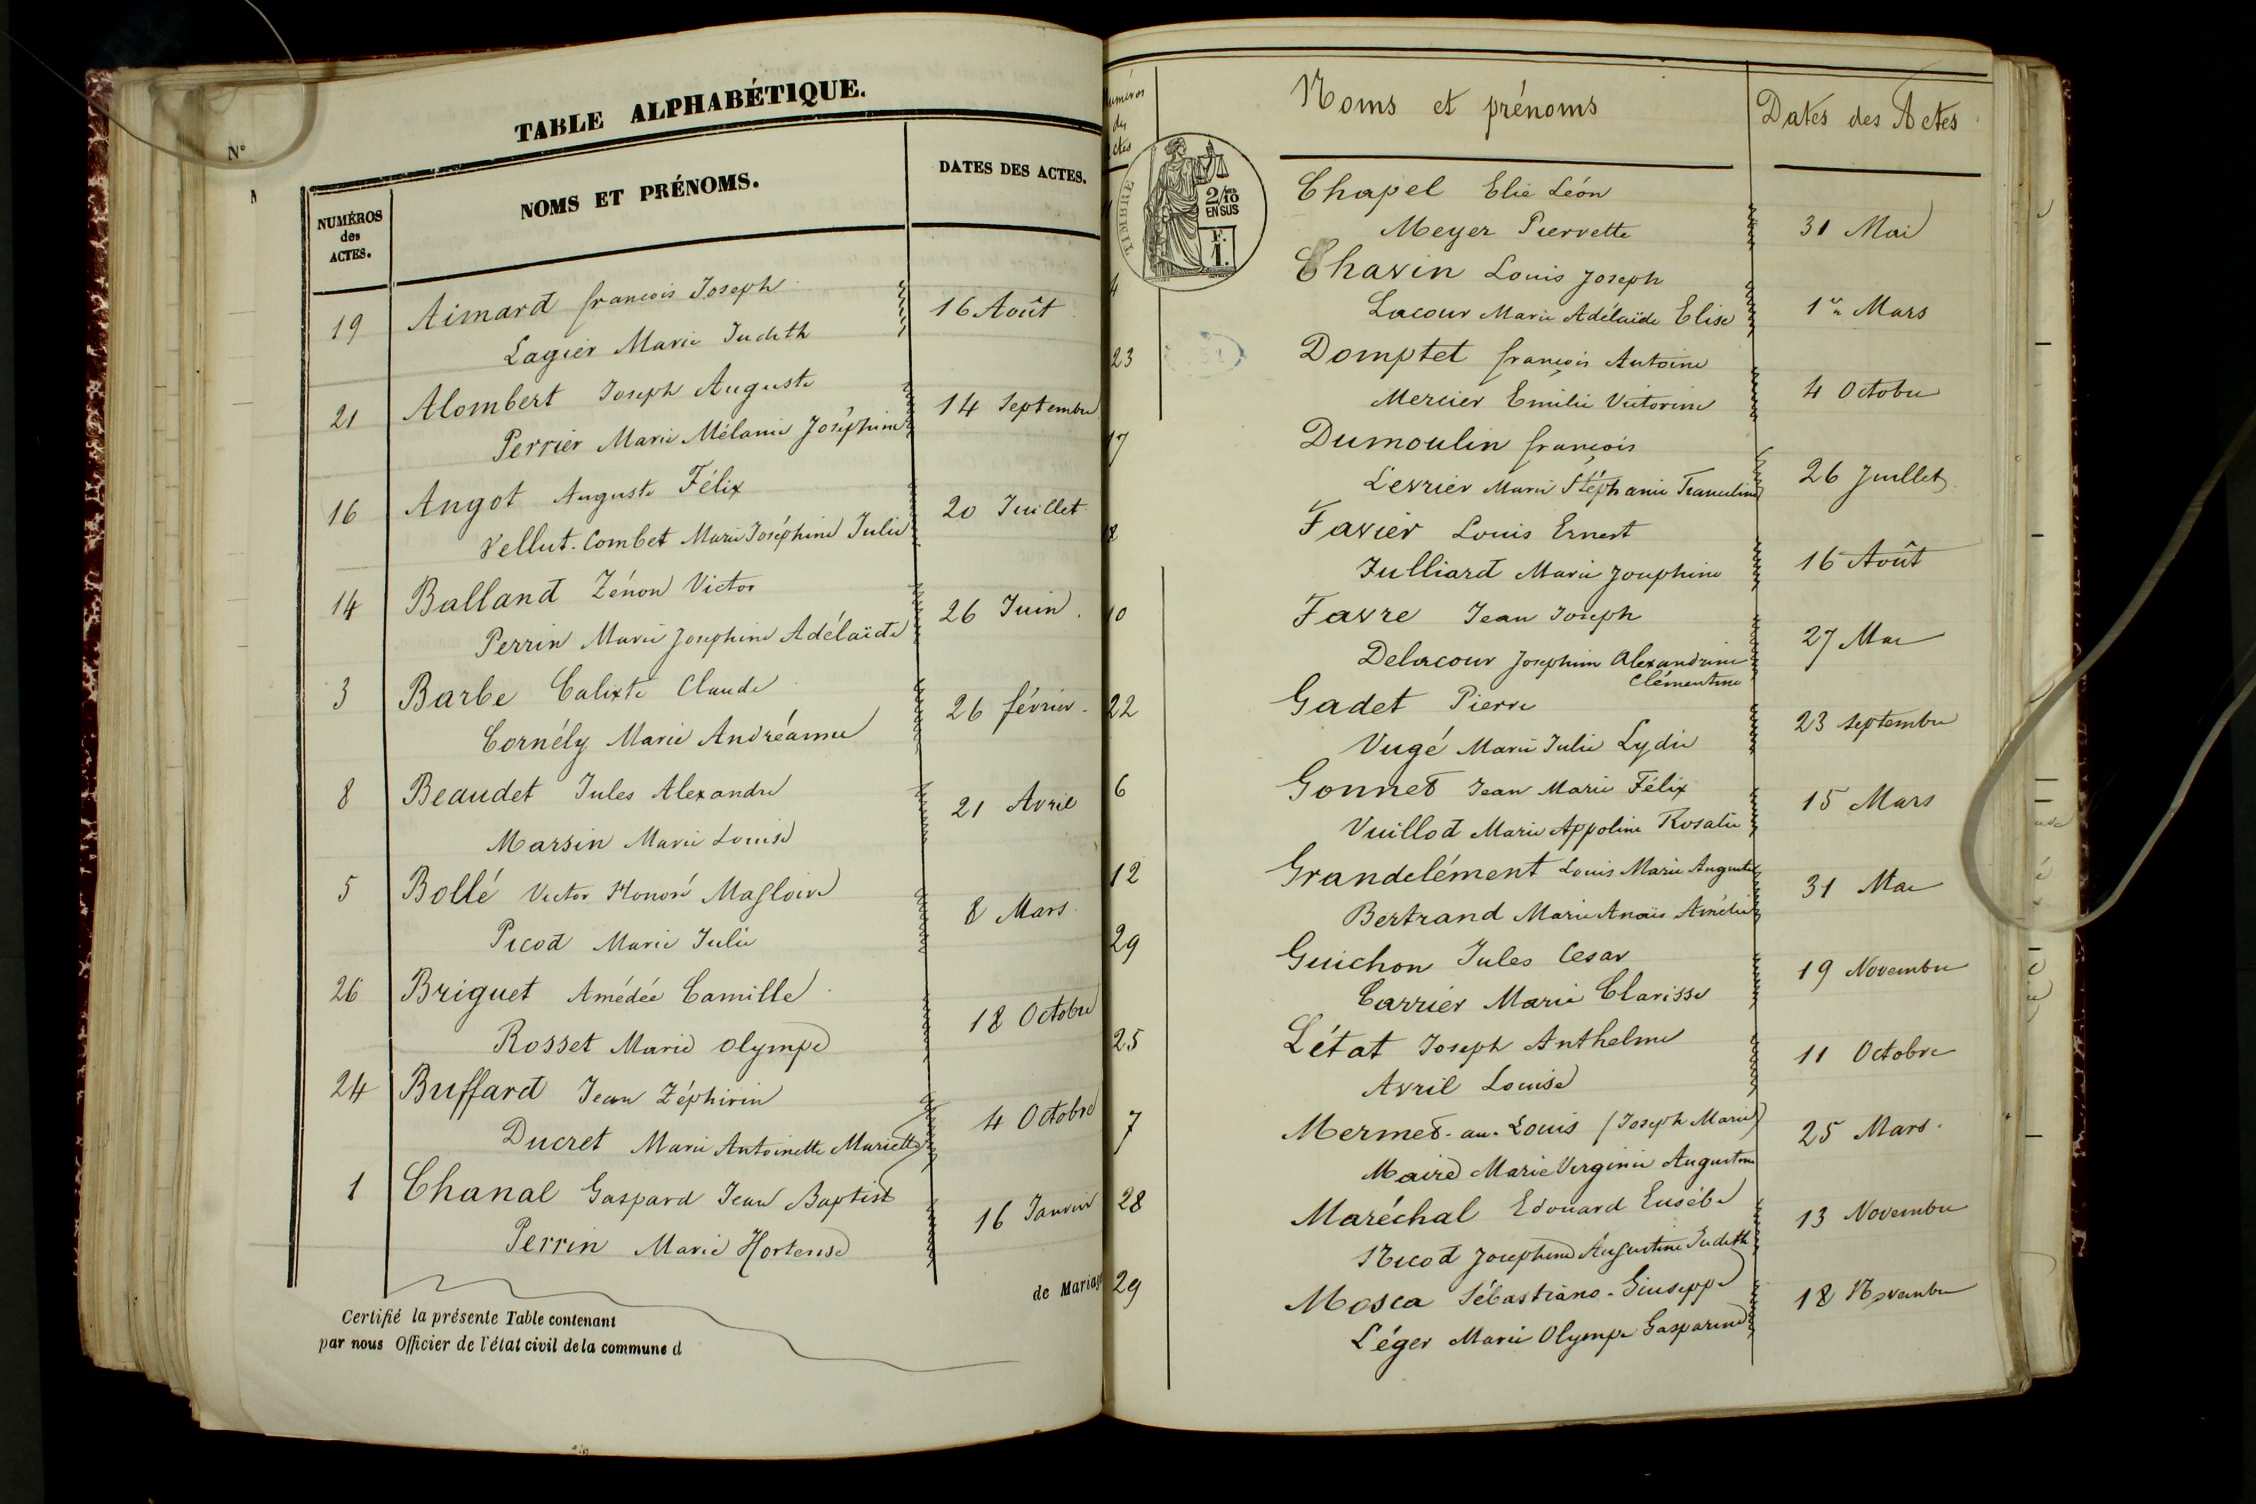 N°
TABLE ALPHABÉTIQUE.
NUMÉROS
des
ACTES.
NOMS ET PRÉNOMS.
DATES DES ACTES.
19 Aimard françois Joseph 16 Août
Lagier Marie Judith
21 Alombert Joseph Auguste 14 Septembre
Perrier Marie Mélanie Joséphine
16 Angot Auguste Félix 20 Juillet
Vellut-Combet Marie Joséphine Julie
14 Balland Zénon Victor 26 Juin
Perrin Marie Josephine Adélaïde
3 Barbe Calixte Claude 26 février
Cornély Marie Andréanne
8 Beaudet Jules Alexandre 21 Avril
Marsin Marie Louise
5 Bollé Victor Honoré Magloire 8 Mars
Picod Marie Julie
26 Briguet Amédée Camille 18 Octobre
Rosset Marie Olympe
24 Buffard Jean Zéphirin 4 Octobre
Ducret Marie Antoinette Mariette
1 Chanal Gaspard Jean Baptist 16 Janvier
Perrin Marie Hortense
Certifié la présente Table contenant de Mariage
par nous Officier de l'état civil de la commune d
numéros
des
Actes
Noms et prénoms
Dates des Actes
TIMBRE
2/10
EN SUS
F.
1.
Chapel Elie Léon
Meyer Pierrette 31 Mai
4 Chavin Louis Joseph
Lacour Marie Adélaïde Elise 1er Mars
23 Domptet françois Antoine
Mercier Emilie Victorine 4 Octobre
17 Dumoulin françois
Levrier Marie Stéphanie Franceline 26 Juillet
18 Favier Louis Ernest
Julliard Marie Josephine 16 Août
10 Favre Jean Joseph
Delacour Josephine Alexandrine 27 Mai
Clémentine
22 Gadet Pierre
Vugé Marie Julie Lydie 23 septembre
6 Gonnet Jean Marie Félix
Vuillod Marie Appoline Rosalie 15 Mars
12 Grandclément Louis Marie Auguste
Bertrand Marie Anaïs Amélie 31 Mai
29 Guichon Jules Cesar
Carrier Marie Clarisse 19 Novembre
25 Létat Joseph Anthelme
Avril Louise 11 Octobre
7 Mermet-au-Louis (Joseph Marie) 25 Mars
Maire Marie Virginie Augustine
28 Maréchal Edouard Eusèbe 13 Novembre
Nicod Josephine Augustine Judith
29 Mosca Sébastiano-Giuseppe 18 Novembre
Léger Marie Olympe Gasparine